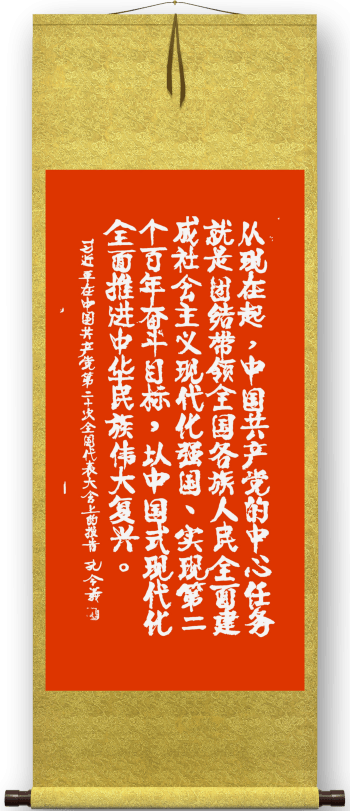 从现在起，中国共产党的中心任务
就是团结带领全国各族人民全面建
成社会主义现代化强国、实现第二
个百年奋斗目标，以中国式现代化
全面推进中华民族伟大复兴。
习近平在中国共产党第二十次全国代表大会上的报告